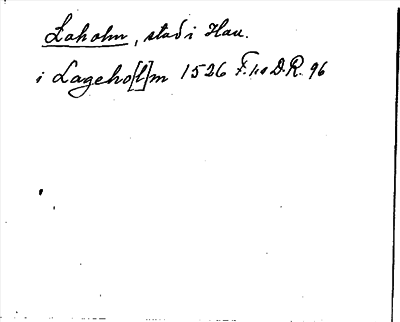 Laholm, stad i Hall.
i Lageho[l]m 1526 F. I:s D.R. 96